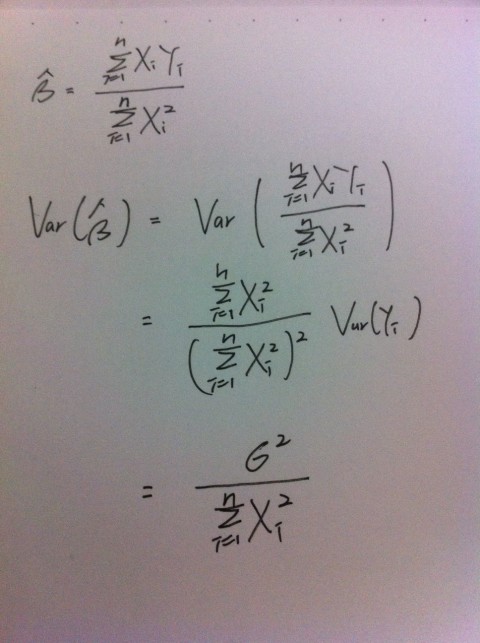 β̂ = \frac{\sum_{i=1}^{n} X_i Y_i}{\sum_{i=1}^{n} X_i^2}
Var(β̂) = Var\left(\frac{\sum_{i=1}^{n} X_i Y_i}{\sum_{i=1}^{n} X_i^2}\right)
= \frac{\sum_{i=1}^{n} X_i^2}{\left(\sum_{i=1}^{n} X_i^2\right)^2} Var(Y_i)
= \frac{σ^2}{\sum_{i=1}^{n} X_i^2}